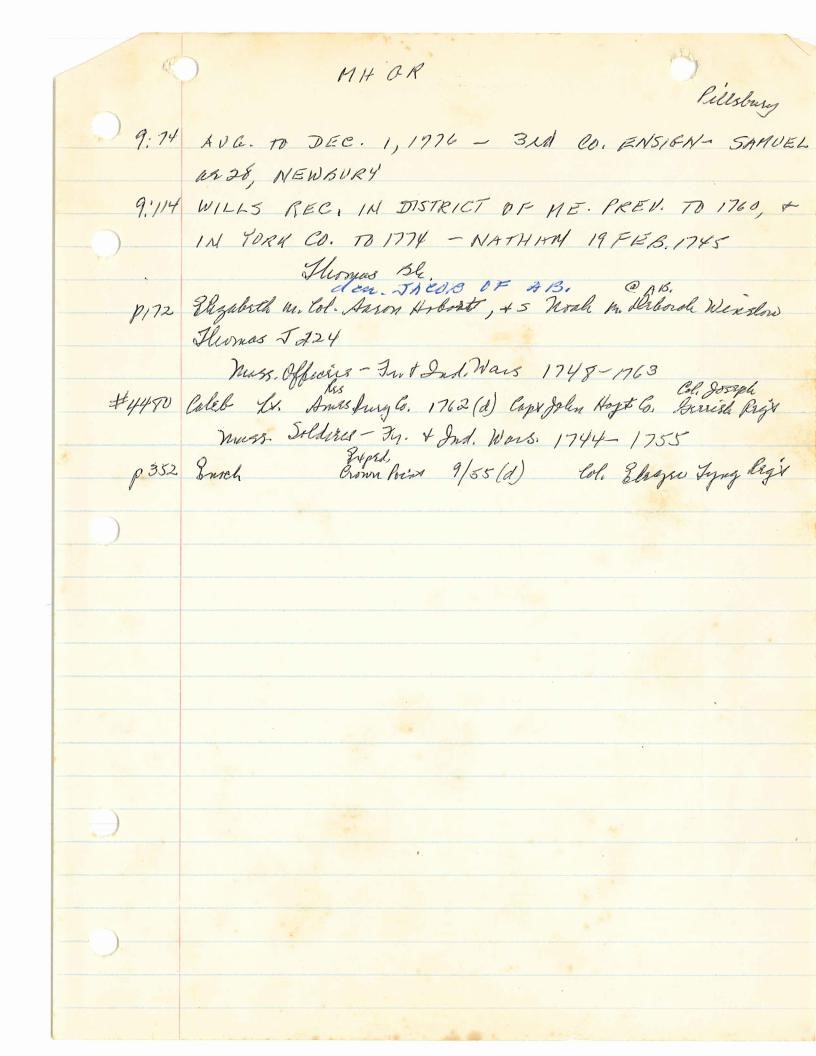 MH GR
Pillsbury
9:74 AUG. TO DEC. 1, 1776 - 3rd CO. ENSIGN - SAMUEL
28, NEWBURY
9:114 WILLS REC. IN DISTRICT OF ME. PREV. TO 1760, +
IN YORK CO. TO 1774 - NATHAN 19 FEB. 1745
Thomas Bk.
JACOB OF AB. @ AB.
p172 Elizabeth m. Col. Aaron Hobart, + s Noah m. Deborah Winslow
Thomas J 224
Mass. Officers - Fr. + Ind. Wars 1748-1763
Res Col. Joseph
#4480 Caleb Lt. Amesbury Co. 1762 (d) Capt John Hoyt Co. Gerrish Reg't
Mass. Soldiers - Fr. + Ind. Wars. 1744-1755
Exped.
p352 Enoch Crown Point 9/55 (d) Col. Eleazer Tyng Reg't